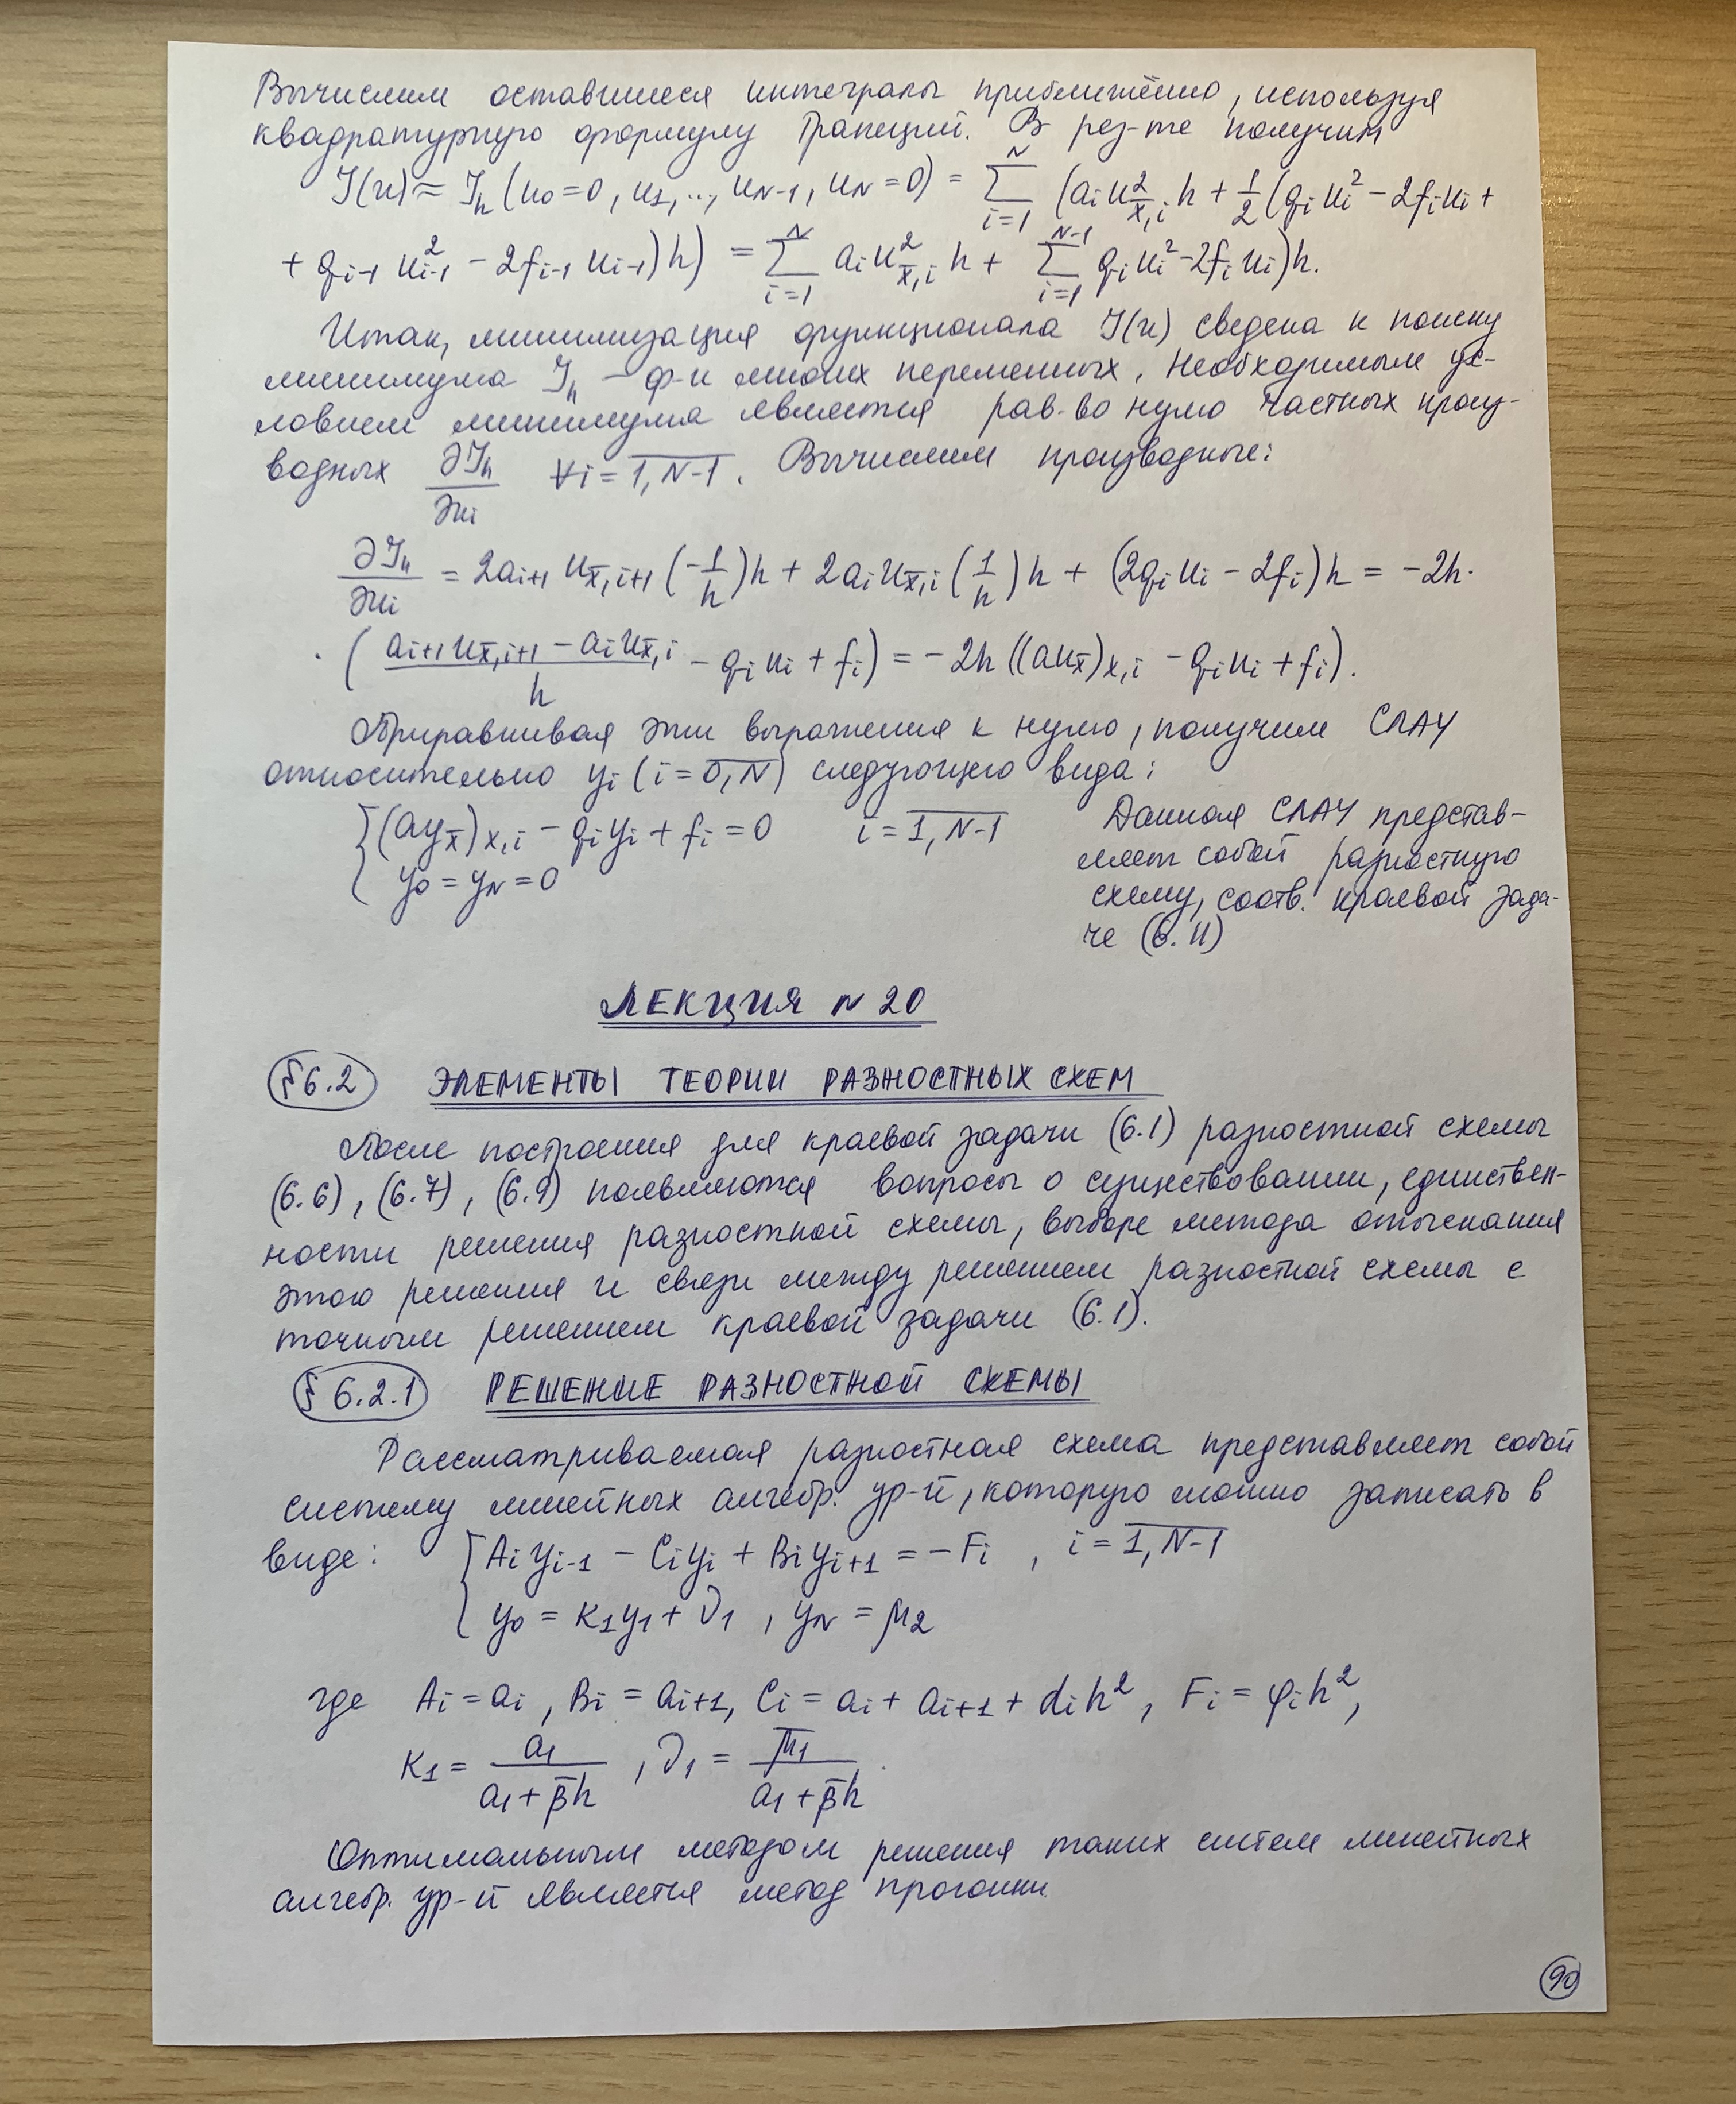 Вычислим оставшиеся интегралы приближённо, используя
квадратурную формулу трапеций. В рез-те получим
J(u) ≈ J_h (u_0=0, u_1, .., u_{N-1}, u_N=0) = \sum_{i=1}^{N} (a_i u^2_{\bar{x},i} h + \frac{1}{2}(q_i u_i^2 - 2f_i u_i +
+ q_{i-1} u_{i-1}^2 - 2f_{i-1} u_{i-1})h) = \sum_{i=1}^{N} a_i u^2_{\bar{x},i} h + \sum_{i=1}^{N-1} q_i u_i^2 - 2f_i u_i)h.
Итак, минимизация функционала J(u) сведена к поиску
минимума J_h - ф-и многих переменных. Необходимым ус-
ловием минимума является рав-во нулю частных произ-
водных \frac{∂J_h}{∂u_i} ∀i = \overline{1,N-1}. Вычислим производные:
\frac{∂J_h}{∂u_i} = 2a_{i+1} u_{\bar{x},i+1} (-\frac{1}{h})h + 2a_i u_{\bar{x},i} (\frac{1}{h})h + (2q_i u_i - 2f_i)h = -2h·
· (\frac{a_{i+1} u_{\bar{x},i+1} - a_i u_{\bar{x},i}}{h} - q_i u_i + f_i) = -2h((au_{\bar{x}})_{x,i} - q_i u_i + f_i).
Приравнивая эти выражения к нулю, получим СЛАУ
относительно y_i (i = \overline{0,N}) следующего вида:
{ (ay_{\bar{x}})_{x,i} - q_i y_i + f_i = 0 i = \overline{1,N-1}
y_0 = y_N = 0
Данная СЛАУ представ-
ляет собой разностную
схему, соотв. краевой зада-
че (6.11)
ЛЕКЦИЯ N 20
§ 6.2 ЭЛЕМЕНТЫ ТЕОРИИ РАЗНОСТНЫХ СХЕМ
После построения для краевой задачи (6.1) разностной схемы
(6.6), (6.7), (6.9) появляются вопросы о существовании, единствен-
ности решения разностной схемы, выборе метода отыскания
этого решения и связи между решением разностной схемы с
точным решением краевой задачи (6.1).
§ 6.2.1 РЕШЕНИЕ РАЗНОСТНОЙ СХЕМЫ
Рассматриваемая разностная схема представляет собой
систему линейных алгебр. ур-й, которую можно записать в
виде: { A_i y_{i-1} - C_i y_i + B_i y_{i+1} = -F_i , i = \overline{1,N-1}
y_0 = κ_1 y_1 + ν_1 , y_N = μ_2
где A_i = a_i , B_i = a_{i+1}, C_i = a_i + a_{i+1} + d_i h^2 , F_i = φ_i h^2,
κ_1 = \frac{a_1}{a_1 + \bar{β}h} , ν_1 = \frac{\bar{μ}_1}{a_1 + \bar{β}h}.
Оптимальным методом решения таких систем линейных
алгебр. ур-й является метод прогонки.
90